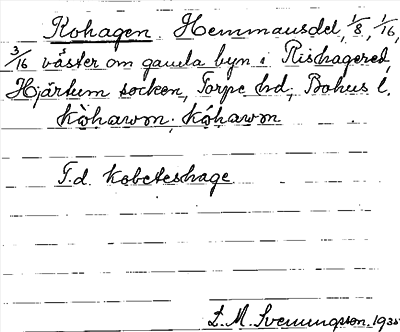 Kohagen. Hemmansdel, 1/8, 1/16,
3/16 väster om gamla byn i Rishagered,
Hjärtum socken, Torpe hd, Bohus l.
kòhawɷn; kóhawɷn
F.d. kobeteshage
E. M. Svenningson, 1935